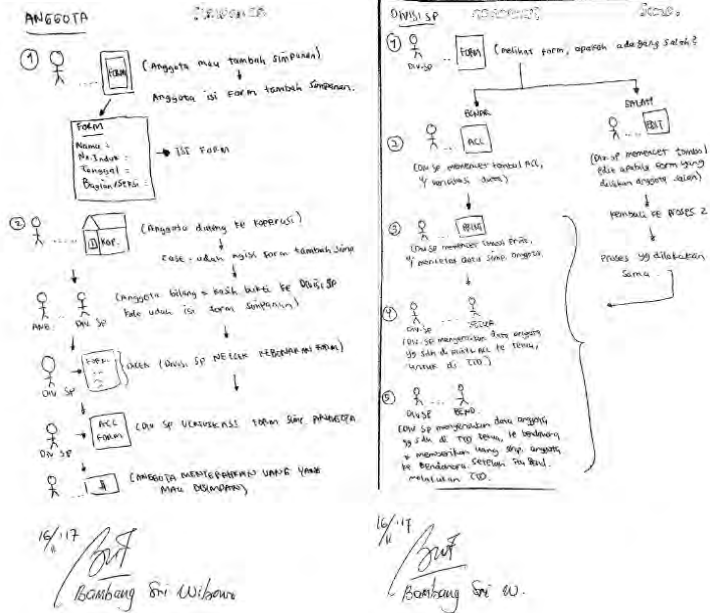 ANGGOTA
①
FORM
(Anggota mau tambah simpanan)
Anggota isi form tambah simpanan.
FORM
Nama :
No. Induk :
Tanggal :
Bagian/seksi :
ISI FORM
②
KOP.
(Anggota datang ke koperasi)
case - udah ngisi form tambah simp
ANG. DIV SP
(Anggota bilang + kasih bukti ke DIVISI SP
kalo udah isi form simpanan)
DIV SP
FORM
(Divisi SP NGECEK KEBENARAN FORM)
DIV SP
ACC
FORM
(DIV SP VERIFIKASI FORM SIMP. ANGGOTA
(ANGGOTA MENYERAHKAN UANG YANG
MAU DISIMPAN)
16/11 '17
Bambang Sri Wibowo
DIVISI SP
①
DIV.SP
FORM
(melihat form, apakah ada yang salah?
BENAR
SALAH
②
ACC
EDIT
(Div SP memencet tombol ACC,
(Div SP memencet tombol
edit apabila form yang
diisikan anggota salah)
kembali ke proses 2
Proses yg dilakukan
sama
③
PRINT
mencetak data simp. anggota
④
DIV.SP
(Div.SP menyerahkan data anggota
yg sdh di
untuk di TTD)
⑤
DIVSP BEND.
(DIV SP menyerahkan data anggota
yg sdh di TTD ke bendahara
+ memberikan uang simp. anggota
ke Bendahara. Setelah itu Bend.
melakukan TTD.
16/11 '17
Bambang Sri W.